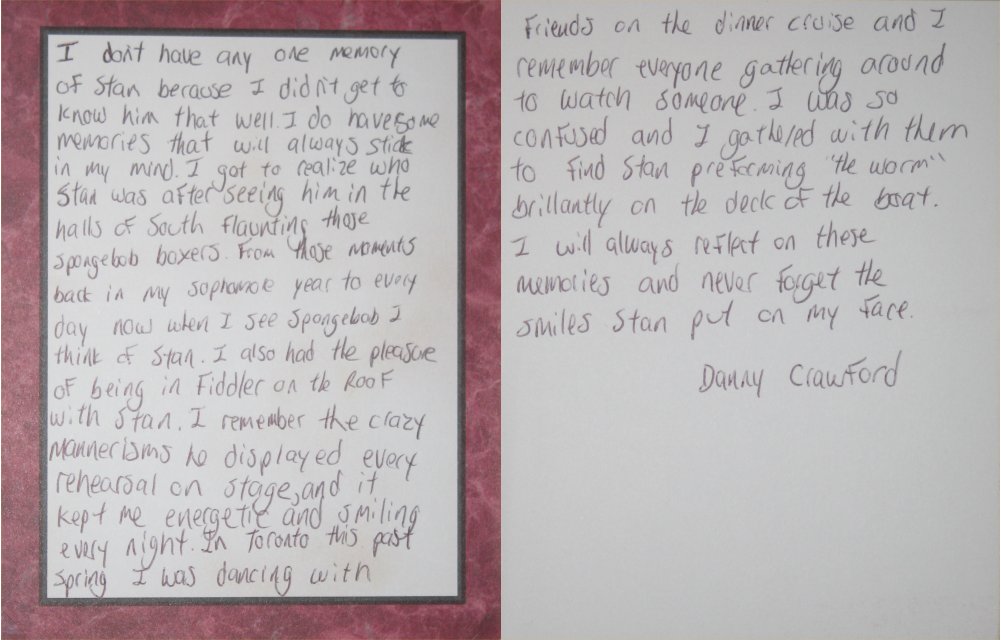 I don't have any one memory
of Stan because I didn't get to
know him that well. I do have some
memories that will always stick
in my mind. I got to realize who
Stan was after seeing him in the
halls of South flaunting those
spongebob boxers. From those moments
back in my sophomore year to every
day now when I see Spongebob I
think of Stan. I also had the pleasure
of being in Fiddler on the Roof
with Stan. I remember the crazy
mannerisms he displayed every
rehearsal on stage, and it
kept me energetic and smiling
every night. In Toronto this past
spring I was dancing with
Friends on the dinner cruise and I
remember everyone gathering around
to watch someone. I was so
confused and I gathered with them
to find Stan preforming "the worm"
brillantly on the deck of the boat.
I will always reflect on these
memories and never forget the
smiles Stan put on my face.
Danny Crawford